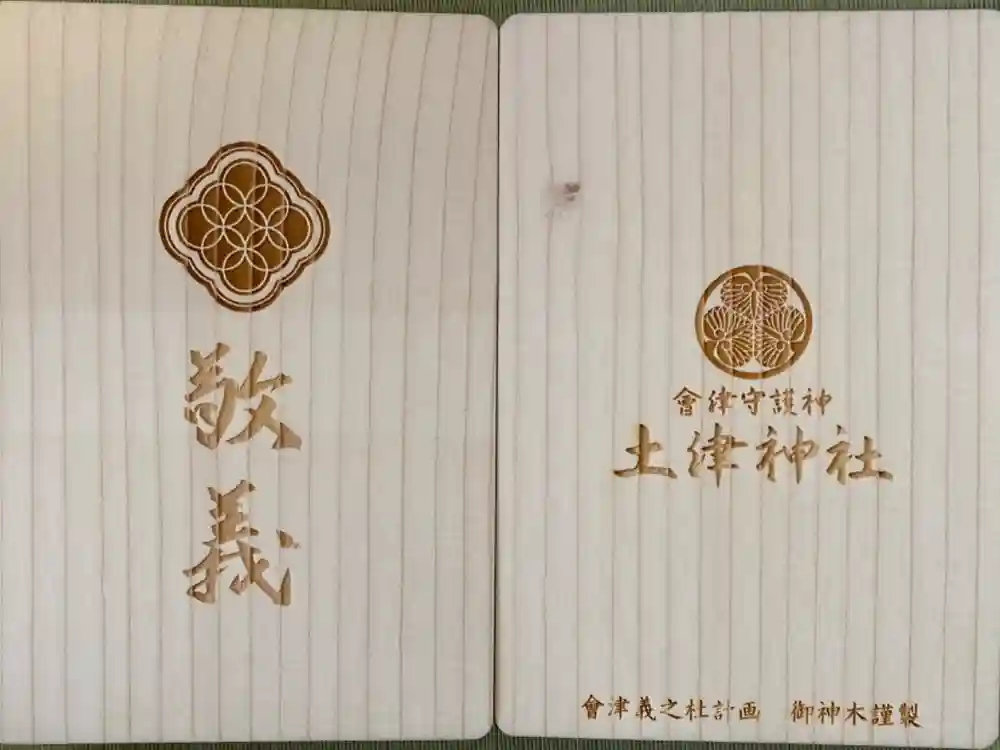 敬義
會津守護神
土津神社
會津義之杜計画 御神木謹製